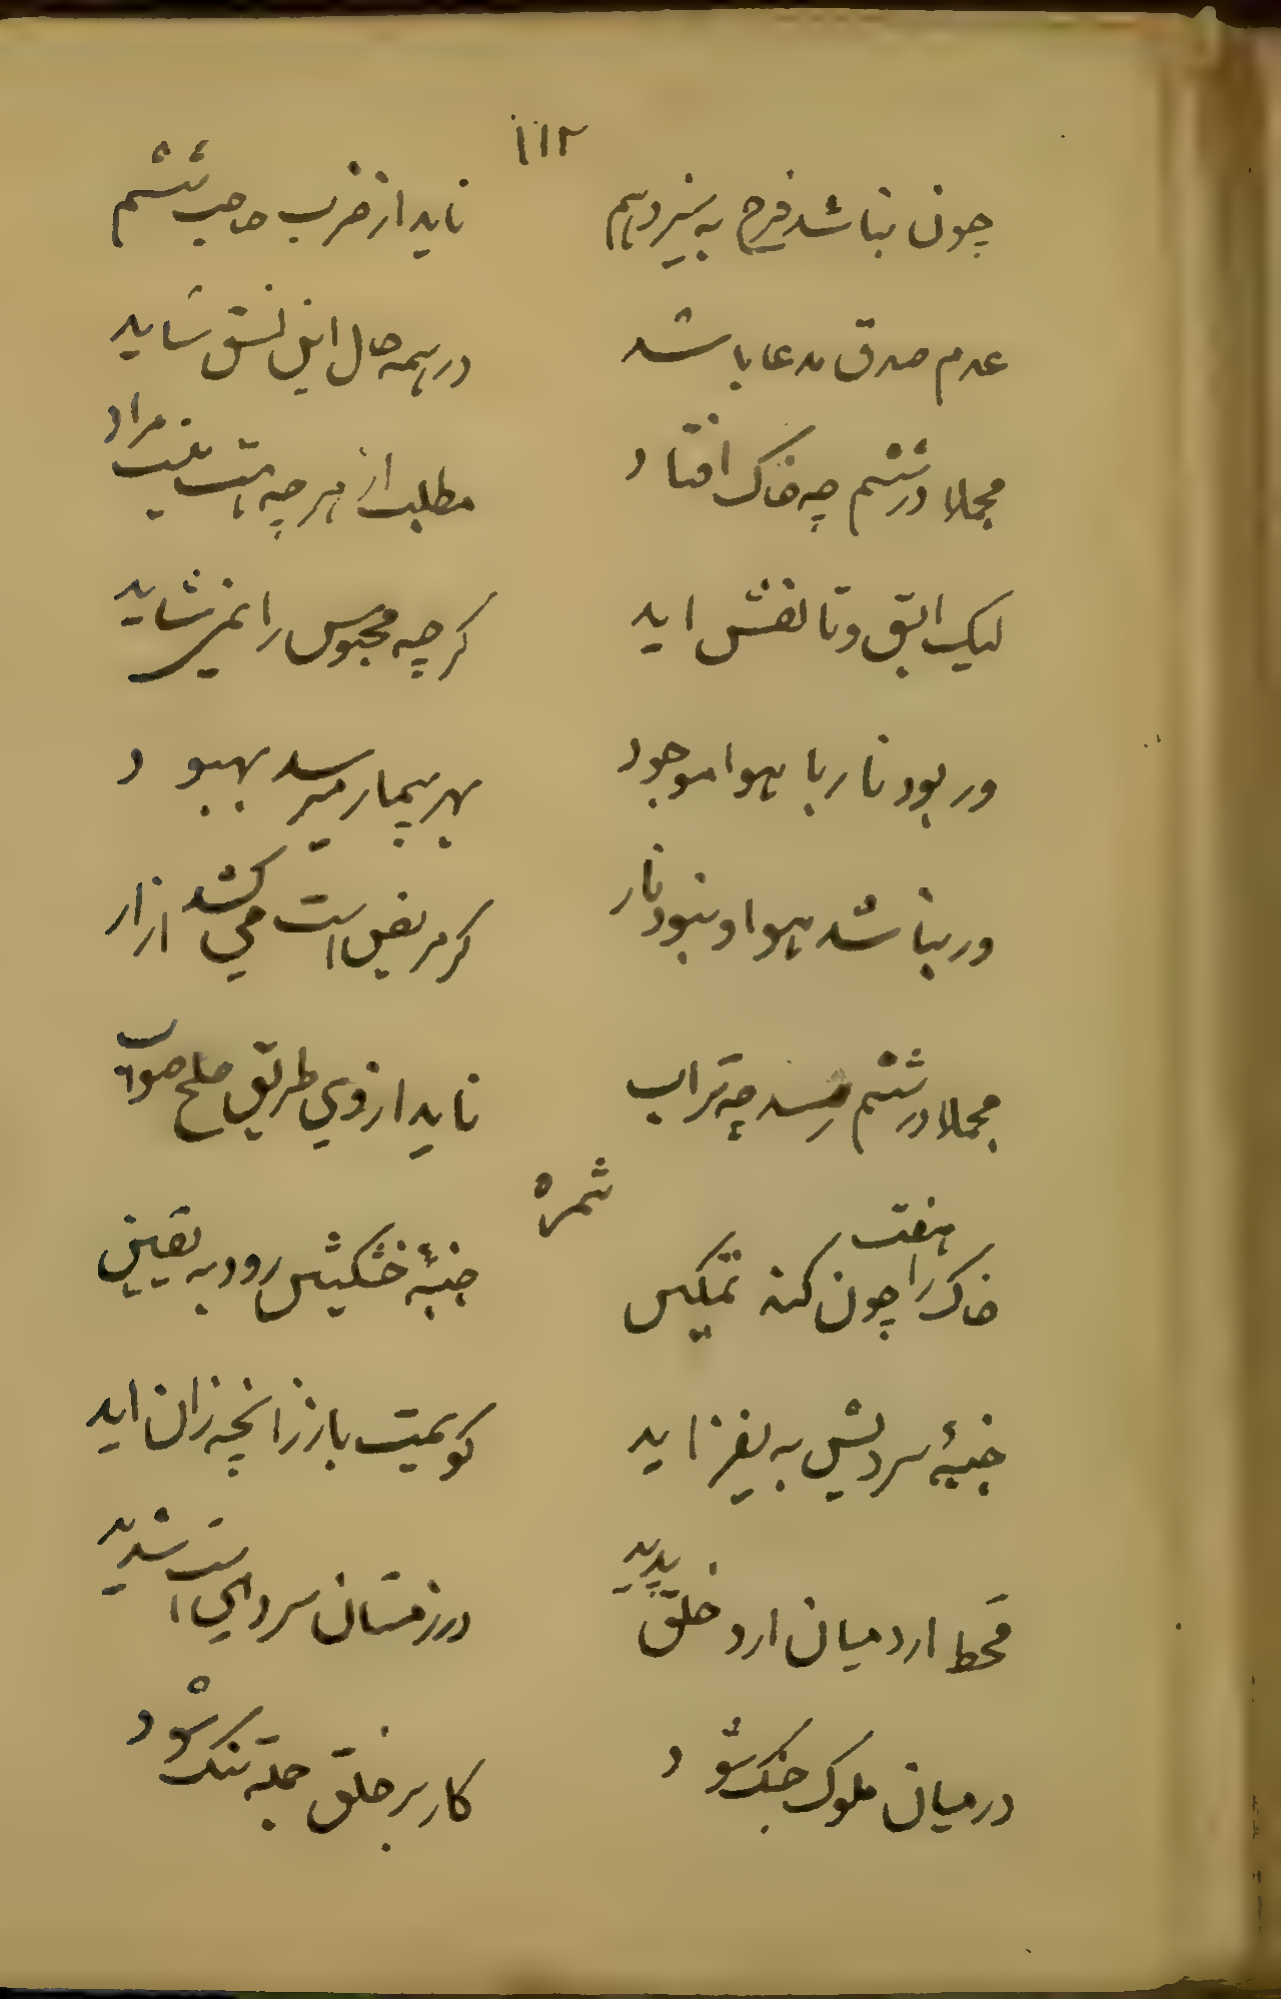 ۱۱۲
چون نباشد فرح به سیزدهم
ناید از ضرب صاحب ششم
عدم صدق مدعا باشد
در همه حال این نسق شاید
مجملا در ششم چه خاک افتاد
مطلبت از هر چه هست نیست مراد
لیک ابق وتا لفش اید
کرچه محبوس را نمی شاید
ور بود نار با هوا موجود
بهر بیمار میرسد بهبود
ور نباشد هوا و نبود نار
کر مریض است می کشد ازار
مجملا در ششم رسد چه تراب
ناید از وی طریق صلح صواب
ثمره
خاک را چون کند هفت تمکین
جنبۀ خشکیش رود به یقین
جنبۀ سردیش به یفزاید
کویمت باز زانچه زان اید
قحط ارد میان ارد خلق پدید
در زمستان سردی است شدید
در میان ملوک جنک شود
کار بر خلق جمله تنک شود